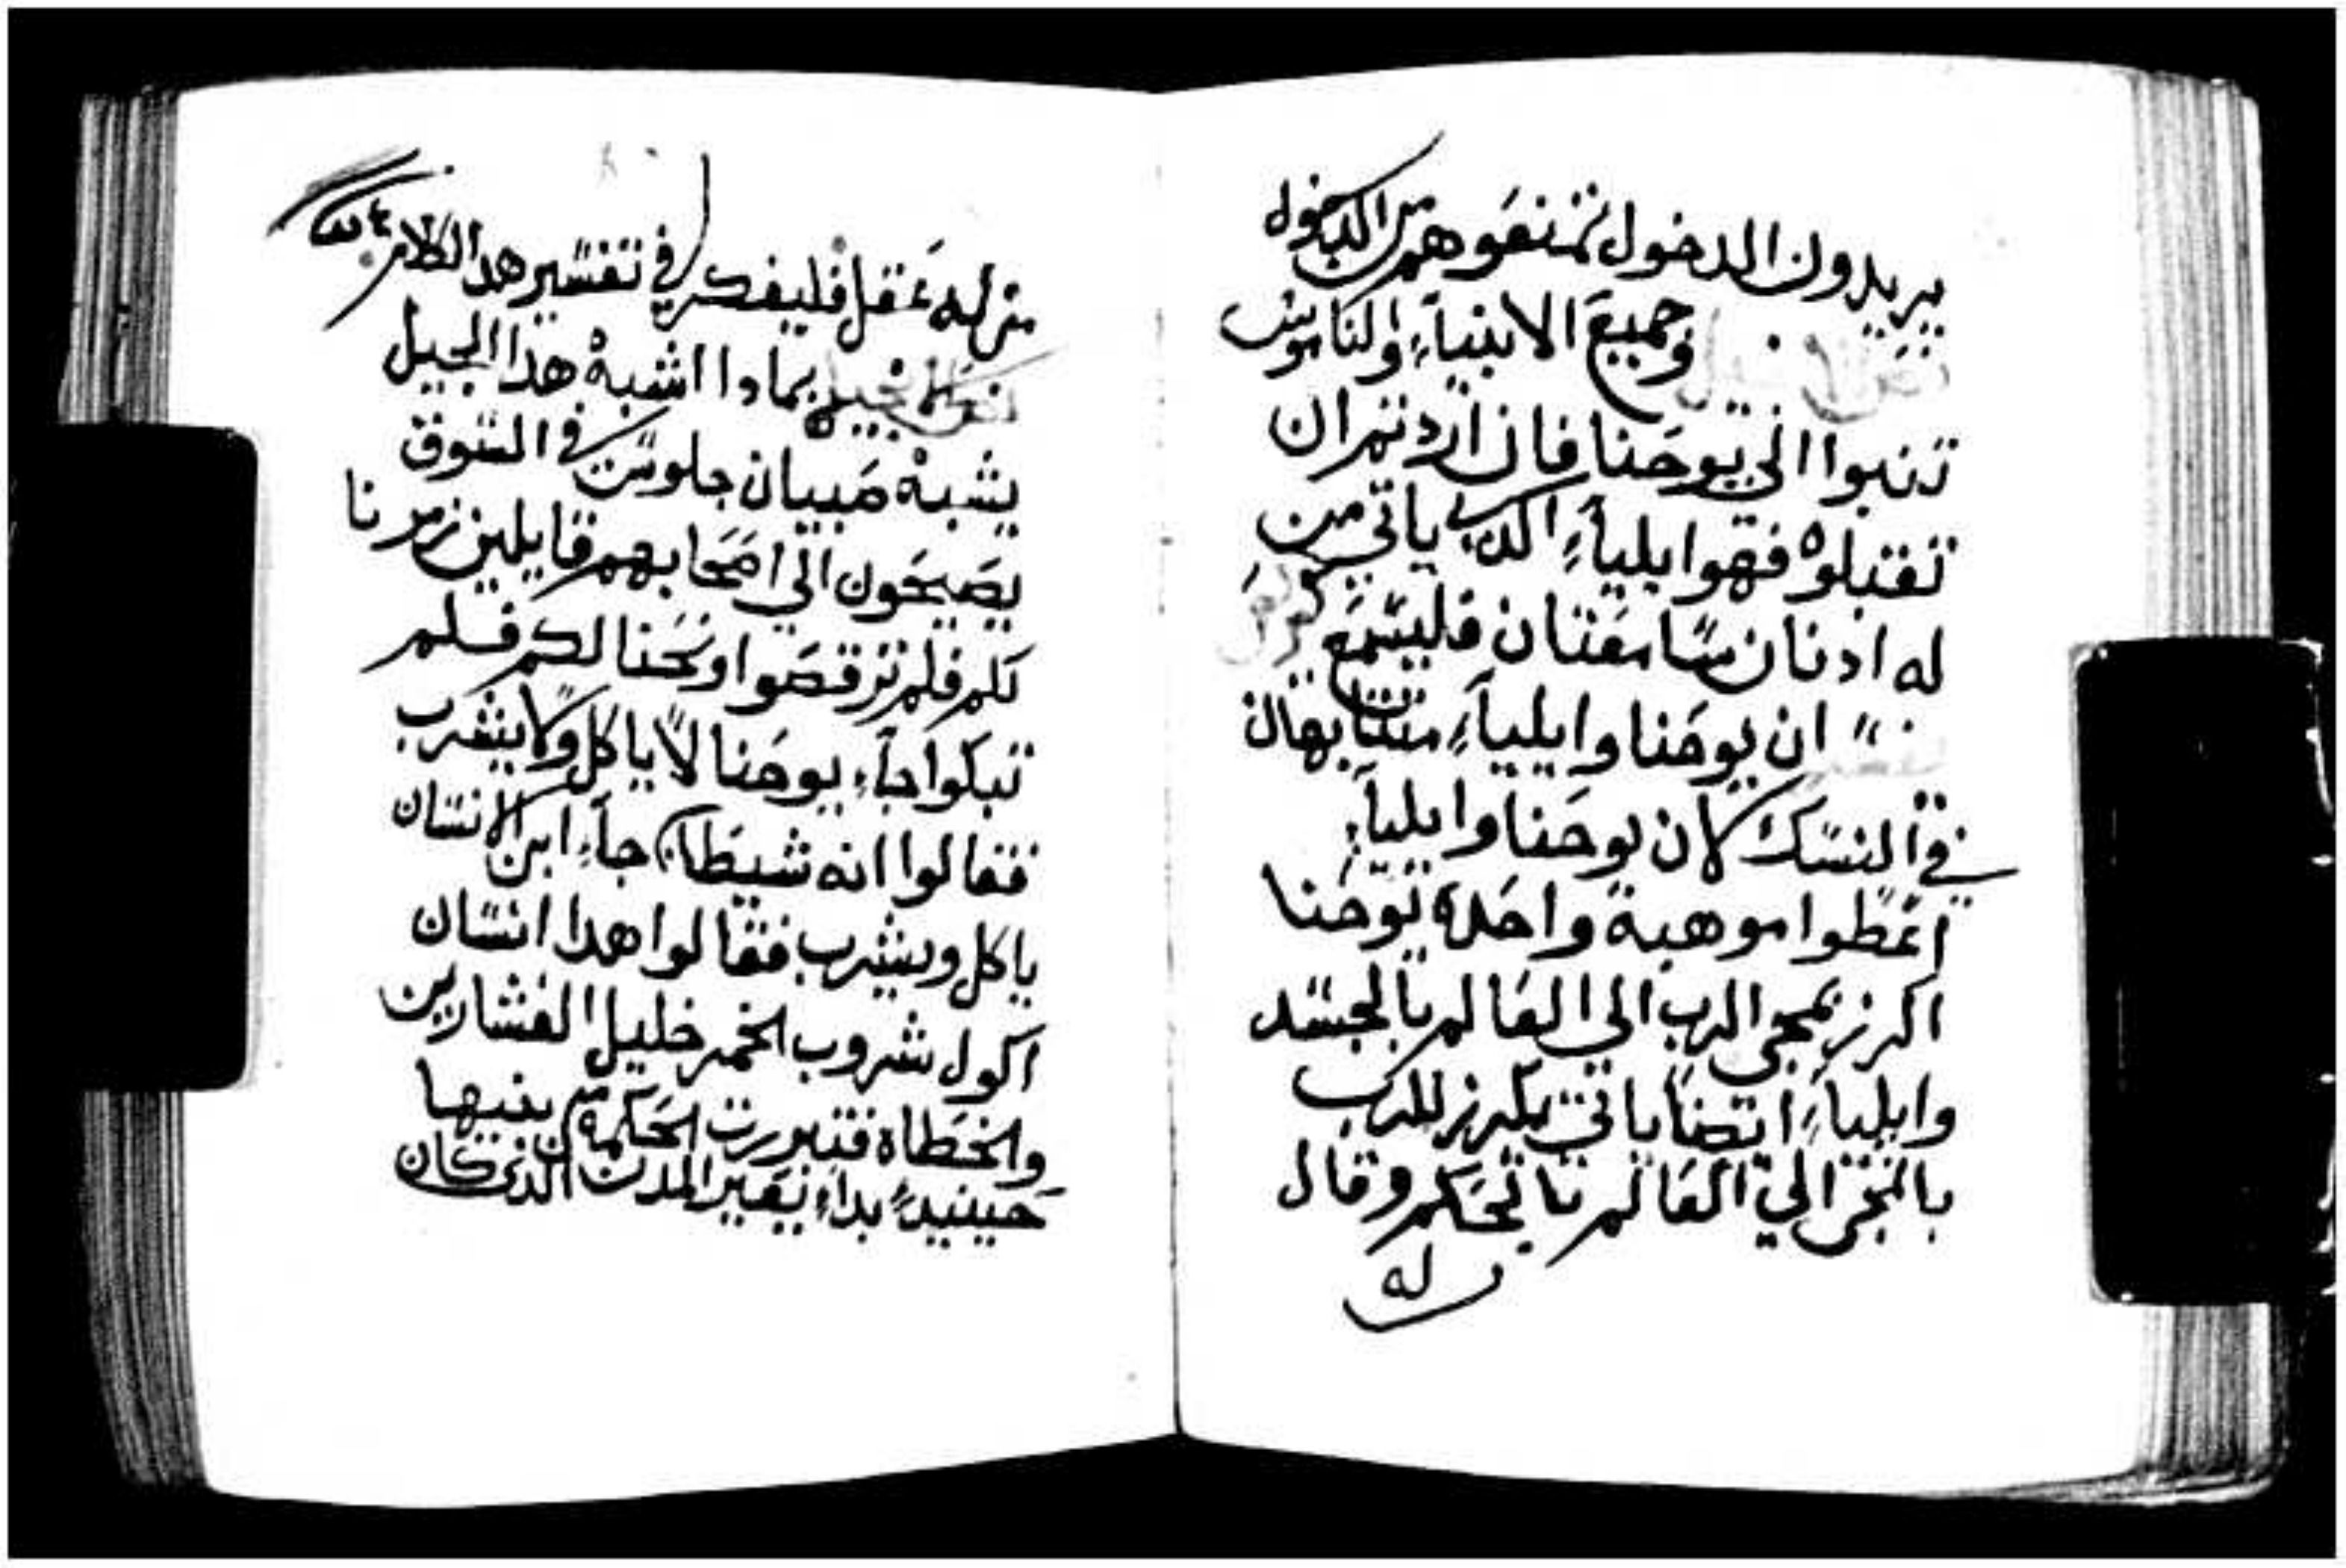 يريدون الدخول تمنعوهم من الدخول
نص الانجيل وجميع الانبياء والناموس
تنبوا الي يوحنا فان اردتم ان
تقبلوه فهو ايلياء الدي ياتي من
له ادنان سامعتان فليسمع
ان يوحنا وايلياء متشابهان
في النسك كان يوحنا وايلياء
اعطوا موهبة واحدة يوحنا
اكرز بمجي الرب الي العالم بالجسد
وايلياء ايضا ياتي يكرز للرب
بالمجي الي العالم بالحكم وقال
له
من له عقل فليفكر في تفسير هدا الكلام
نص الانجيل بمادا اشبه هدا الجيل
يشبه صبيان جلوس في السوق
يصيحون الي اصحابهم قايلين زمرنا
لكم فلم ترقصوا ونحنا لكم فلم
تبكوا جاء يوحنا لا ياكل ولا يشرب
فقالوا انه شيطان جاء ابن الانسان
ياكل ويشرب فقالوا هدا انسان
اكول شروب الخمر خليل العشارين
والخطاه فتبررت الحكمة من بنيها
حينيد بداء يعير المدن الدي كان